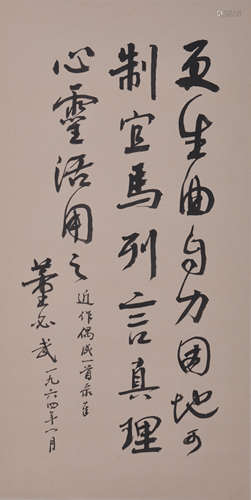 更生由自力因地可
制宜馬列言真理
心靈活用之
近作偶成一首录呈
董必武一九六四年一月